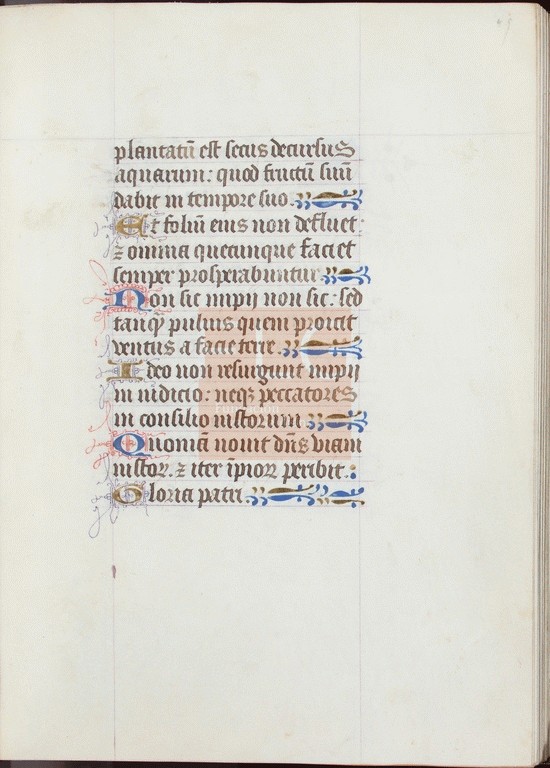 plantatū est secus decursus
aquarum: quod fructū suū
dabit in tempore suo.
Et foliū eius non defluet:
⁊ omnia quecunque faciet
semper prosperabuntur
Non sic impij non sic: sed
tanq̄ puluis quem proicit
ventus a facie terre.
Ideo non resurgunt impij
in iudicio: neqꝫ peccatores
in consilio iustorum
Quoniā nouit dn̄s viam
iustoꝝ. ⁊ iter īpioꝝ peribit.
Gloria patri.